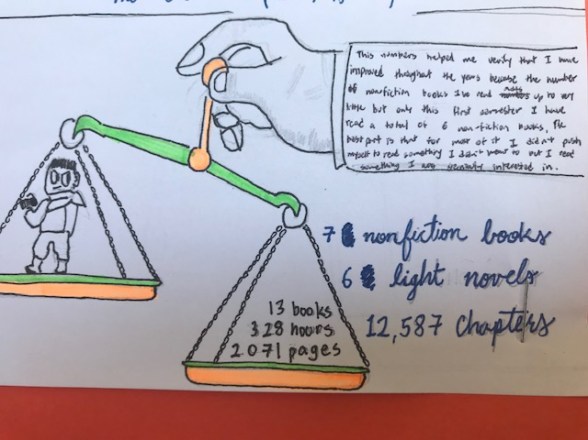 This numbers helped me verify that I have
improved throughout the years because the number
of nonfiction books I've read up to very
little but only this first semester I have
read a total of 6 non-fiction books, The
best part is that for most of it I didn't push
myself to read something I didn't want to but I read
something I am genuinely interested in.
7 nonfiction books
6 light novels
12,587 chapters
13 books
328 hours
2071 pages